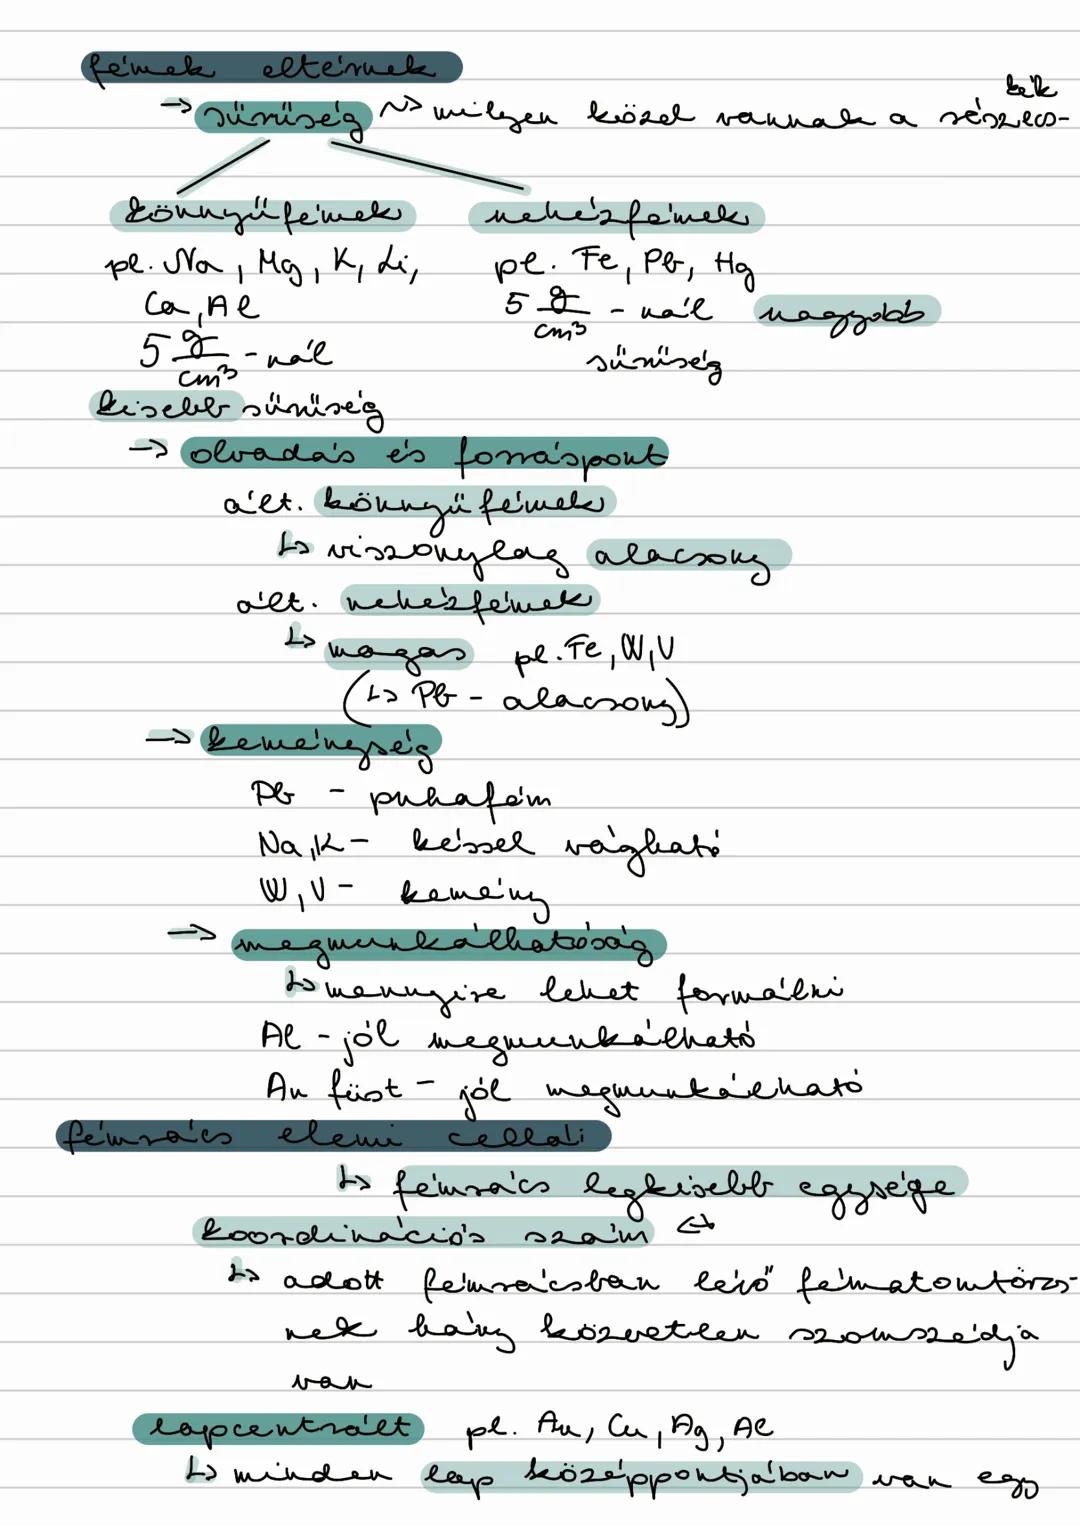 fémek eltérnek
→ sűrűség ~> milyen közel vannak a részecs-
kék
könnyűfémek nehézfémek
pl. Na, Mg, K, Li, pl. Fe, Pb, Hg
Ca, Al 5 g/cm³ - nál nagyobb
5 g/cm³ - nál sűrűség
kisebb sűrűség
→ olvadás és forráspont
ált. könnyűfémek
↳ viszonylag alacsony
ált. nehézfémek
↳ magas pl. Fe, W, V
(↳ Pb - alacsony)
→ keménység
Pb - puhafém
Na, K - késsel vágható
W, V - kemény
→ megmunkálhatóság
↳ mennyire lehet formálni
Al - jól megmunkálható
Au füst - jól megmunkálható
fémrács elemi cellái
↳ fémrács legkisebb egysége
koordinációs szám ↔
↳ adott fémrácsban lévő fématomtörzs-
nek hány közvetlen szomszédja
van
lapcentrált pl. Au, Cu, Ag, Al
↳ minden lap középpontjában van egy